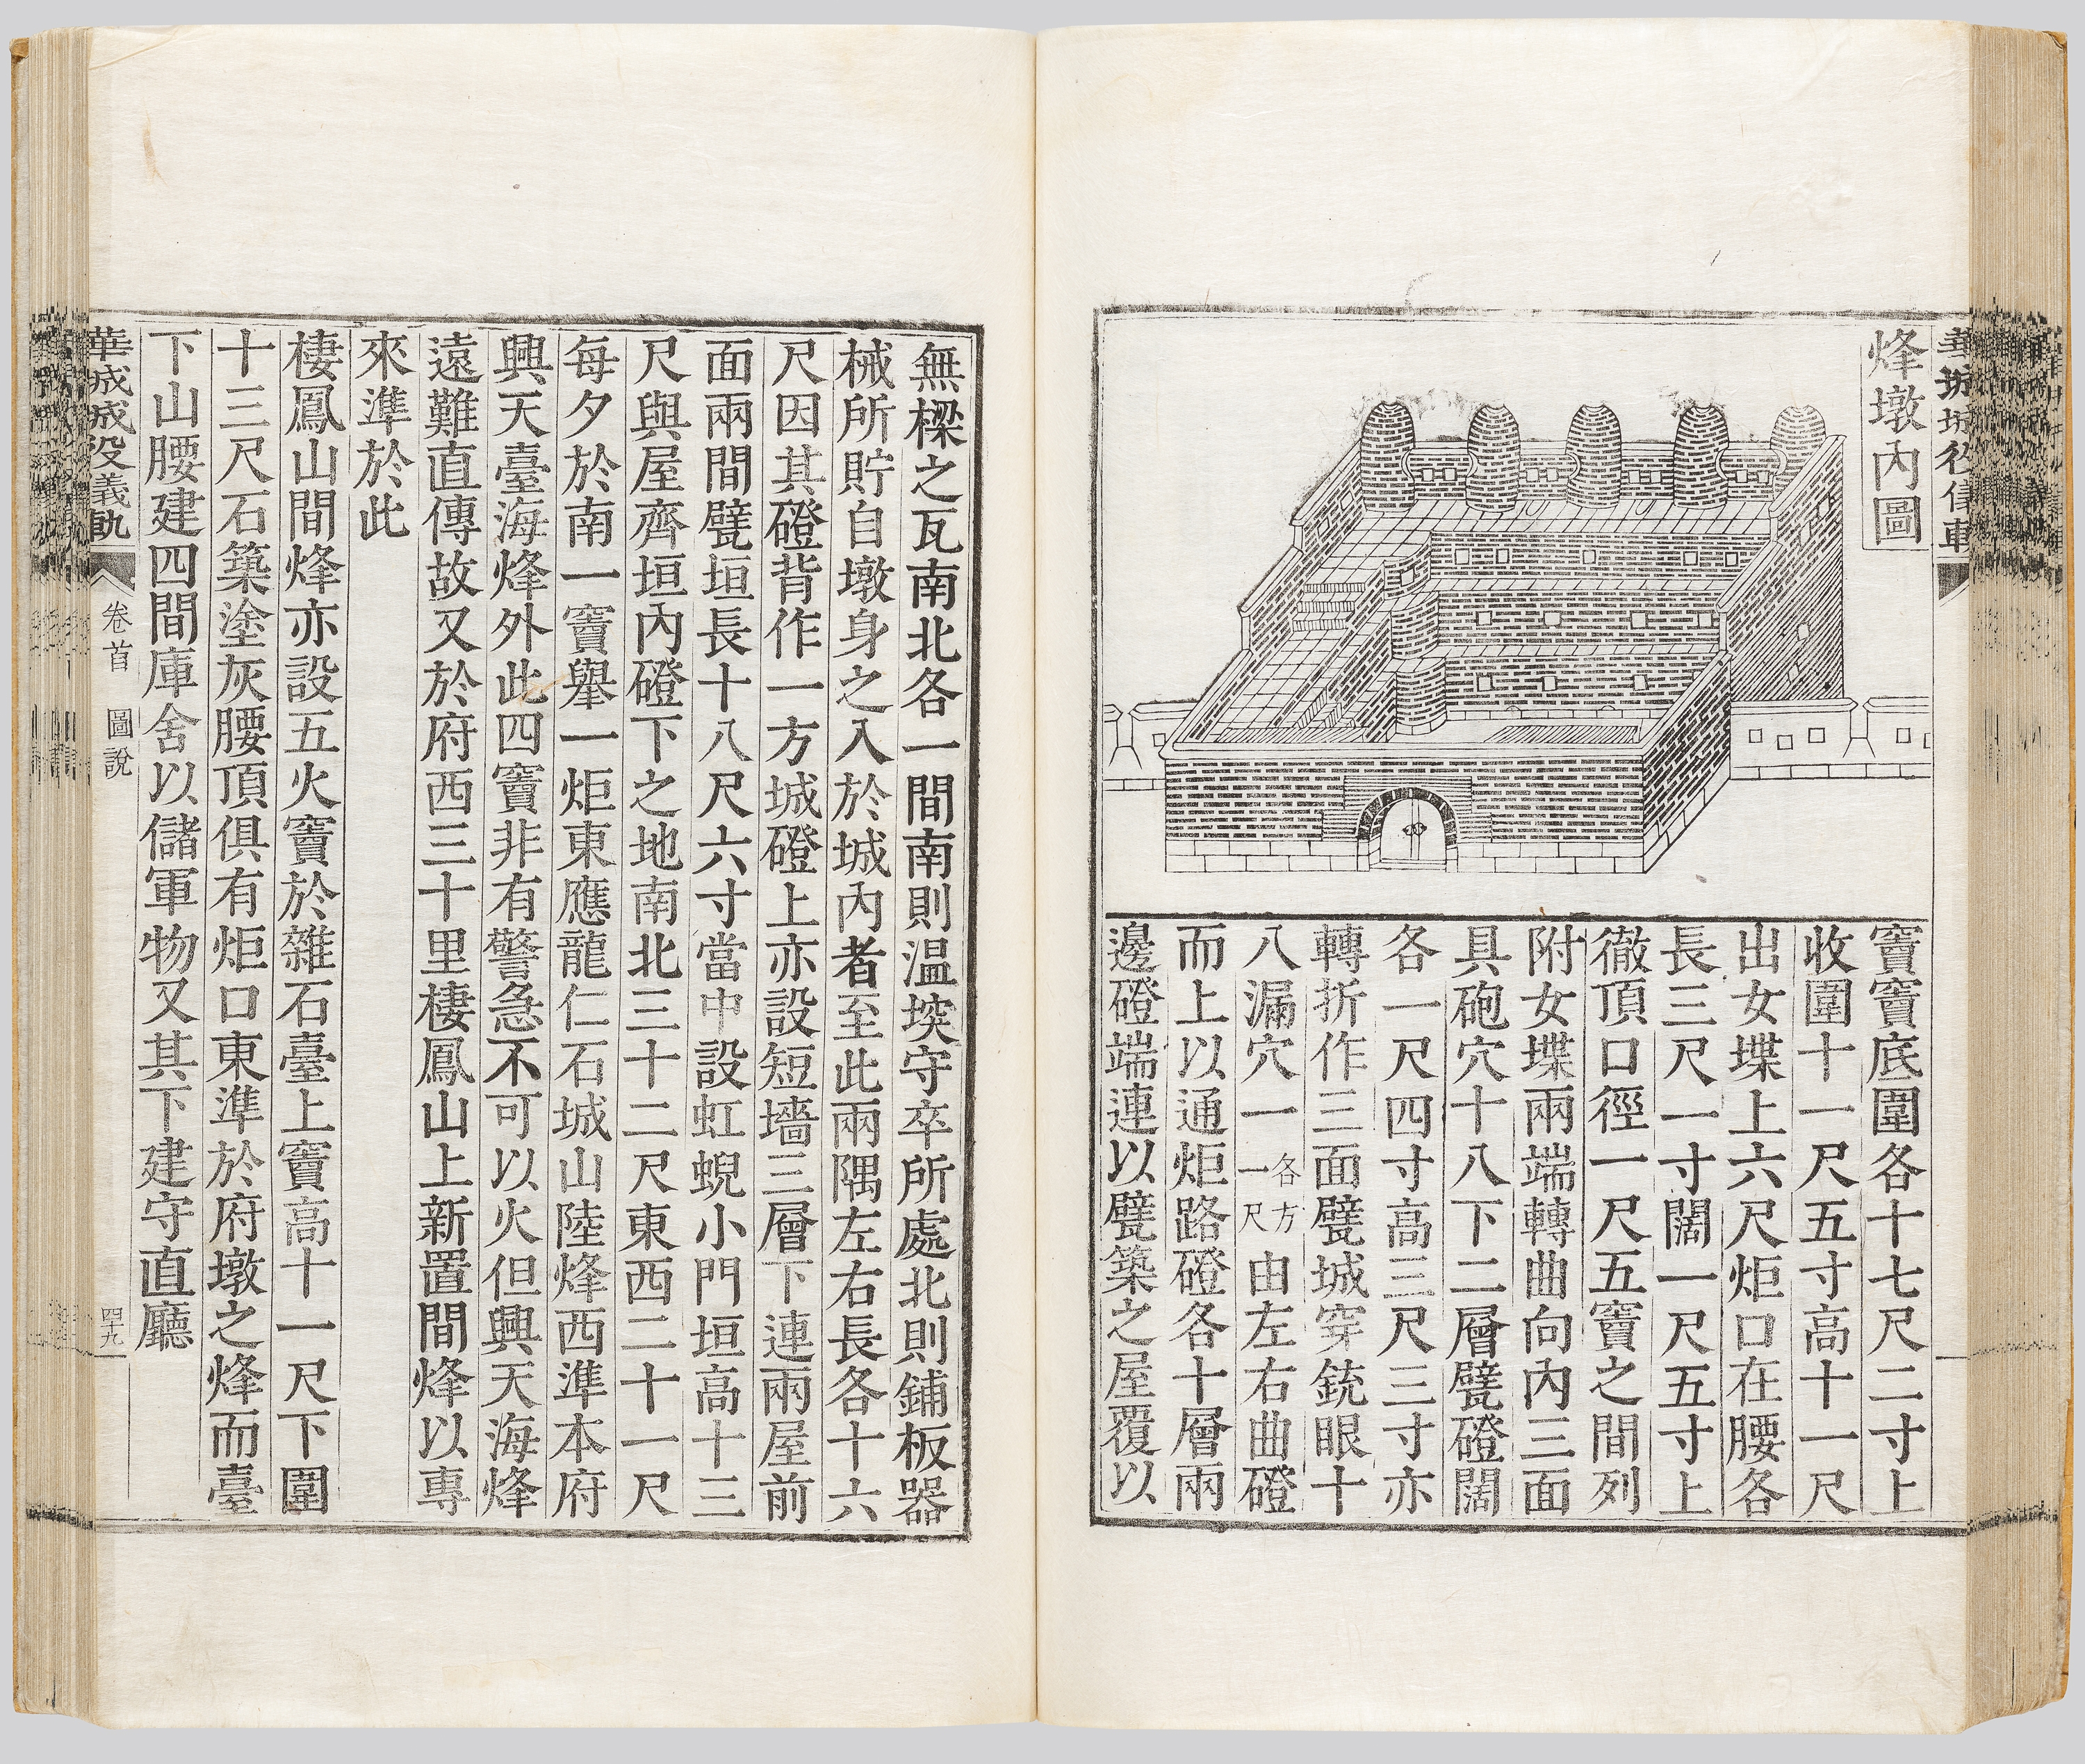 烽墩內圖
竇竇底圍各十七尺二寸上
收圍十一尺五寸高十一尺
出女堞上六尺炬口在腰各
長三尺一寸闊一尺五寸上
徹頂口徑一尺五竇之間列
附女堞兩端轉曲向內三面
具砲穴十八下二層甓磴闊
各一尺四寸高三尺三寸亦
轉折作三面甓城穿銃眼十
八漏穴一各方一尺由左右曲磴
而上以通炬路磴各十層兩
邊磴端連以甓築之屋覆以
無樑之瓦南北各一間南則溫堗守卒所處北則鋪板器
械所貯自墩身之入於城內者至此兩隅左右長各十六
尺因其磴背作一方城磴上亦設短墻三層下連兩屋前
面兩間甓垣長十八尺六寸當中設虹蜺小門垣高十三
尺與屋齊垣內磴下之地南北三十二尺東西二十一尺
每夕於南一竇舉一炬東應龍仁石城山陸烽西準本府
興天臺海烽外此四竇非有警急不可以火但興天海烽
遠難直傳故又於府西三十里棲鳳山上新置間烽以專
來準於此
棲鳳山間烽亦設五火竇於雜石臺上竇高十一尺下圍
十三尺石築塗灰腰頂俱有炬口東準於府墩之烽而臺
下山腰建四間庫舍以儲軍物又其下建守直廳
華城城役儀軌 卷首 圖說 四十九